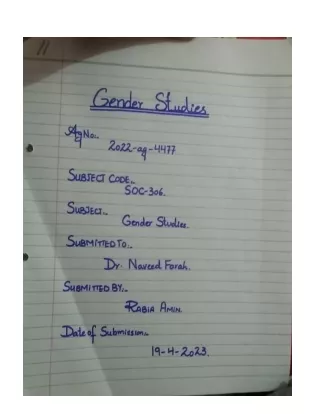 Gender Studies
Ag No:.
2022-ag-4477
SUBJECT CODE..
SOC-306.
SUBJECT..
Gender Studies.
SUBMITTED TO..
Dr. Naveed Farah.
SUBMITTED BY..
RABIA AMIN.
Date of Submission..
19-4-2023.